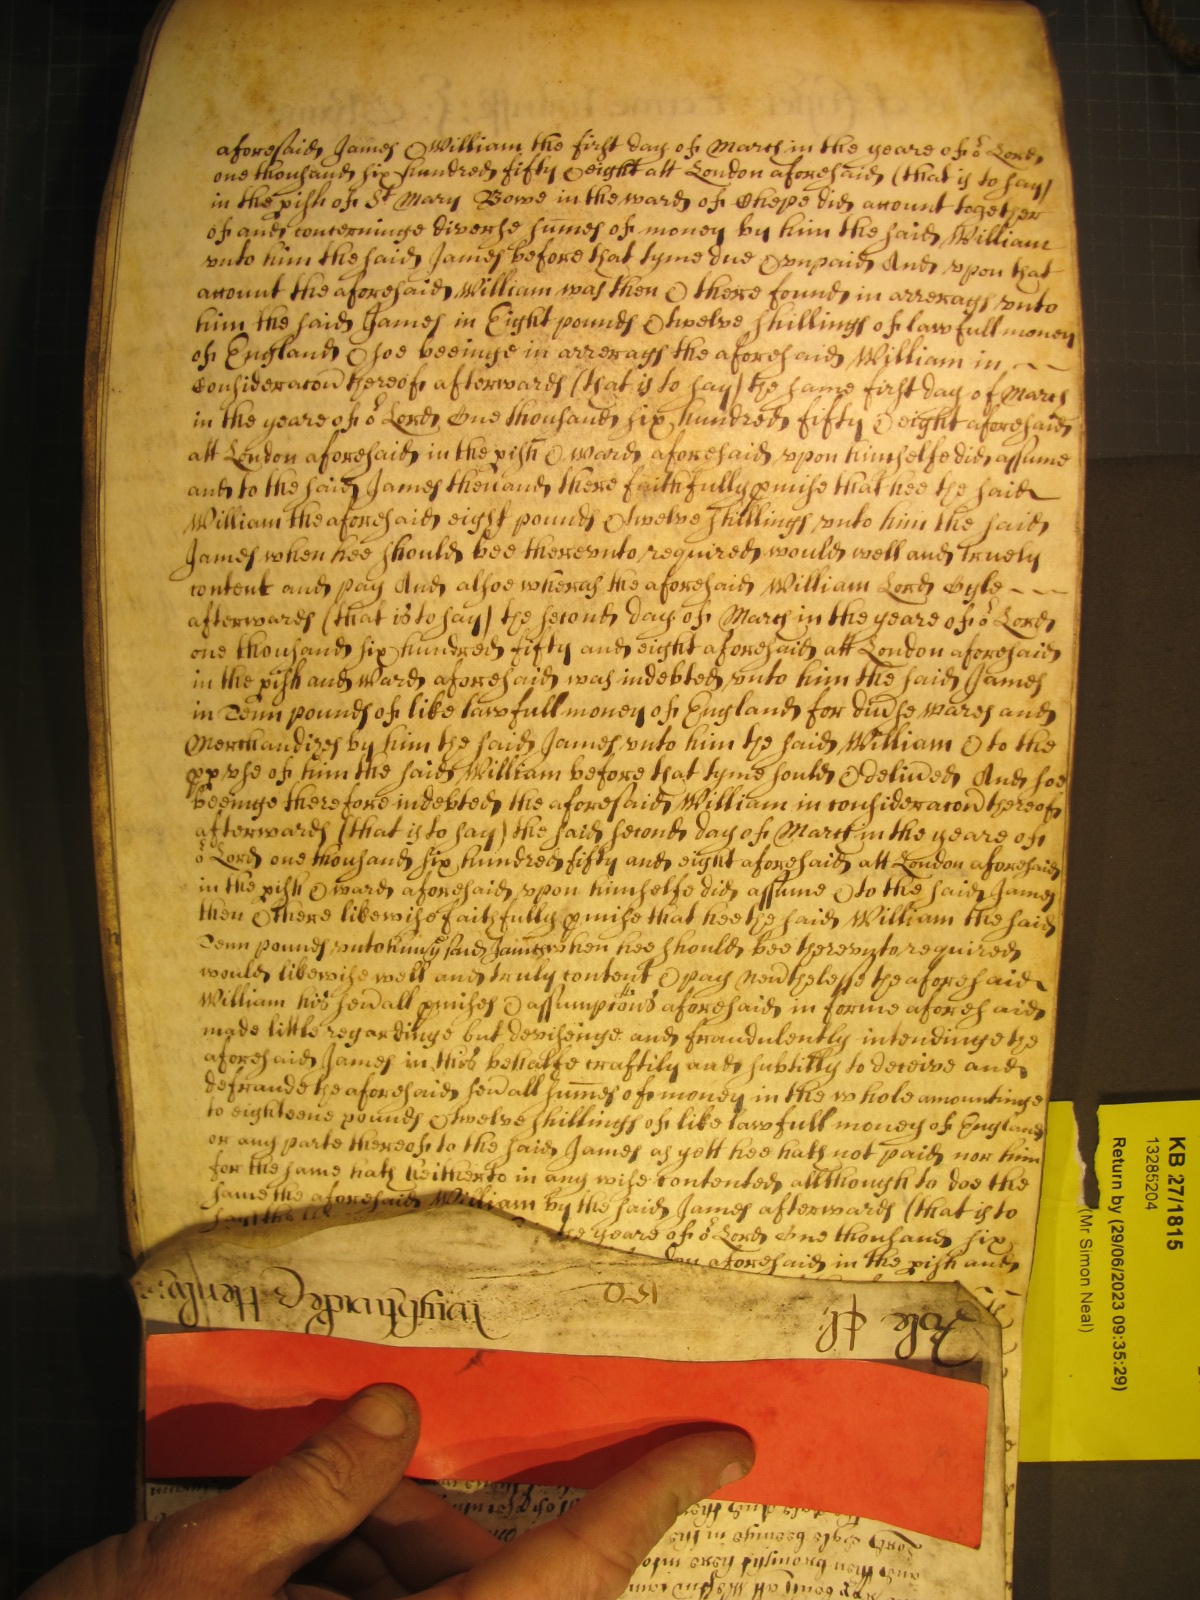 aforesaid James & William the first day of March in the yeare of oʳ Lord
one thousand six hundred fifty & eight att London aforesaid (that is to say)
in the pish of Sᵗ Mary Bowe in the ward of Chepe did account together
of and concerninge diverse sumes of money by him the said William
unto him the said James before that tyme due & unpaid And upon that
account the aforesaid William was then & there found in arrerags unto
him the said James in Eight pounds & twelve shillings of lawfull money
of England & soe beeinge in arrerags the aforesaid William in
Consideracon thereof afterwards (that is to say) the same first day of March
in the yeare of oʳ Lord One thousand six hundred fifty & eight aforesaid
att London aforesaid in the pish & ward aforesaid upon himselfe did assume
and to the said James then and there faithfully pmise that hee the said
William the aforesaid eight pounds & twelve shillings unto him the said
James when hee should bee thereunto required would well and truely
content and pay And alsoe wheras the aforesaid William Lord
afterwards (that is to say) the second day of March in the yeare of oʳ Lord
one thousand six hundred fifty and eight aforesaid att London aforesaid
in the pish and Ward aforesaid was indebted unto him the said James
in Tenn pounds of like lawfull money of England for divse wares and
Merchandizes by him the said James unto him the said William & to the
pp use of him the said William before that tyme sould & delived And soe
beeinge therefore indebted the aforesaid William in consideracon thereof
afterwards (that is to say) the said second day of March in the yeare of
oʳ Lord one thousand six hundred fifty and eight aforesaid att London aforesaid
in the pish & ward aforesaid upon himselfe did assume & to the said James
then & there likewise faithfully pmise that hee the said William the said
Tenn pounds unto him yᵉ said James when hee should bee thereunto required
would likewise well and truly content & pay Nevthelesse the aforesaid
William his sevall pmises & assumpcons aforesaid in forme aforesaid
made little regardinge but deviseinge and fraudulently intendinge the
aforesaid James in this behalfe craftily and subtilly to deceive and
defraude the aforesaid sevall sumes of money in the whole amountinge
to eighteene pounds & twelve shillings of like lawfull money of England
or any parte thereof to the said James as yett hee hath not paid nor him
for the same hath heitherto in any wise contented allthough to doe the
same the aforesaid William by the said James afterwards (that is to
say) the yeare of oʳ Lord One thousand six
aforesaid in the pish and
KB 27/1815
13285204
Return by (29/06/2023 09:35:29)
(Mr Simon Neal)